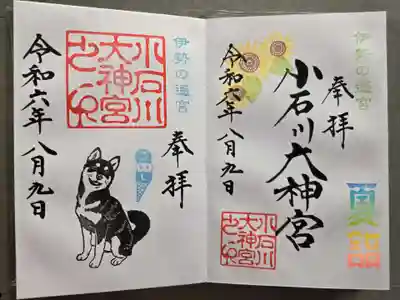 伊勢の遥宮
奉拝
小石川大神宮
令和六年八月九日
小石川
大神宮
伊勢の遥宮
奉拝
小石川
大神宮
令和六年八月九日